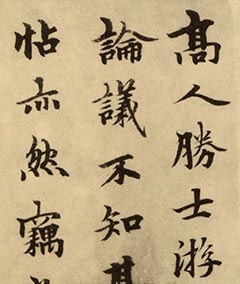 髙人勝士游
論議不知其
帖亦然竊